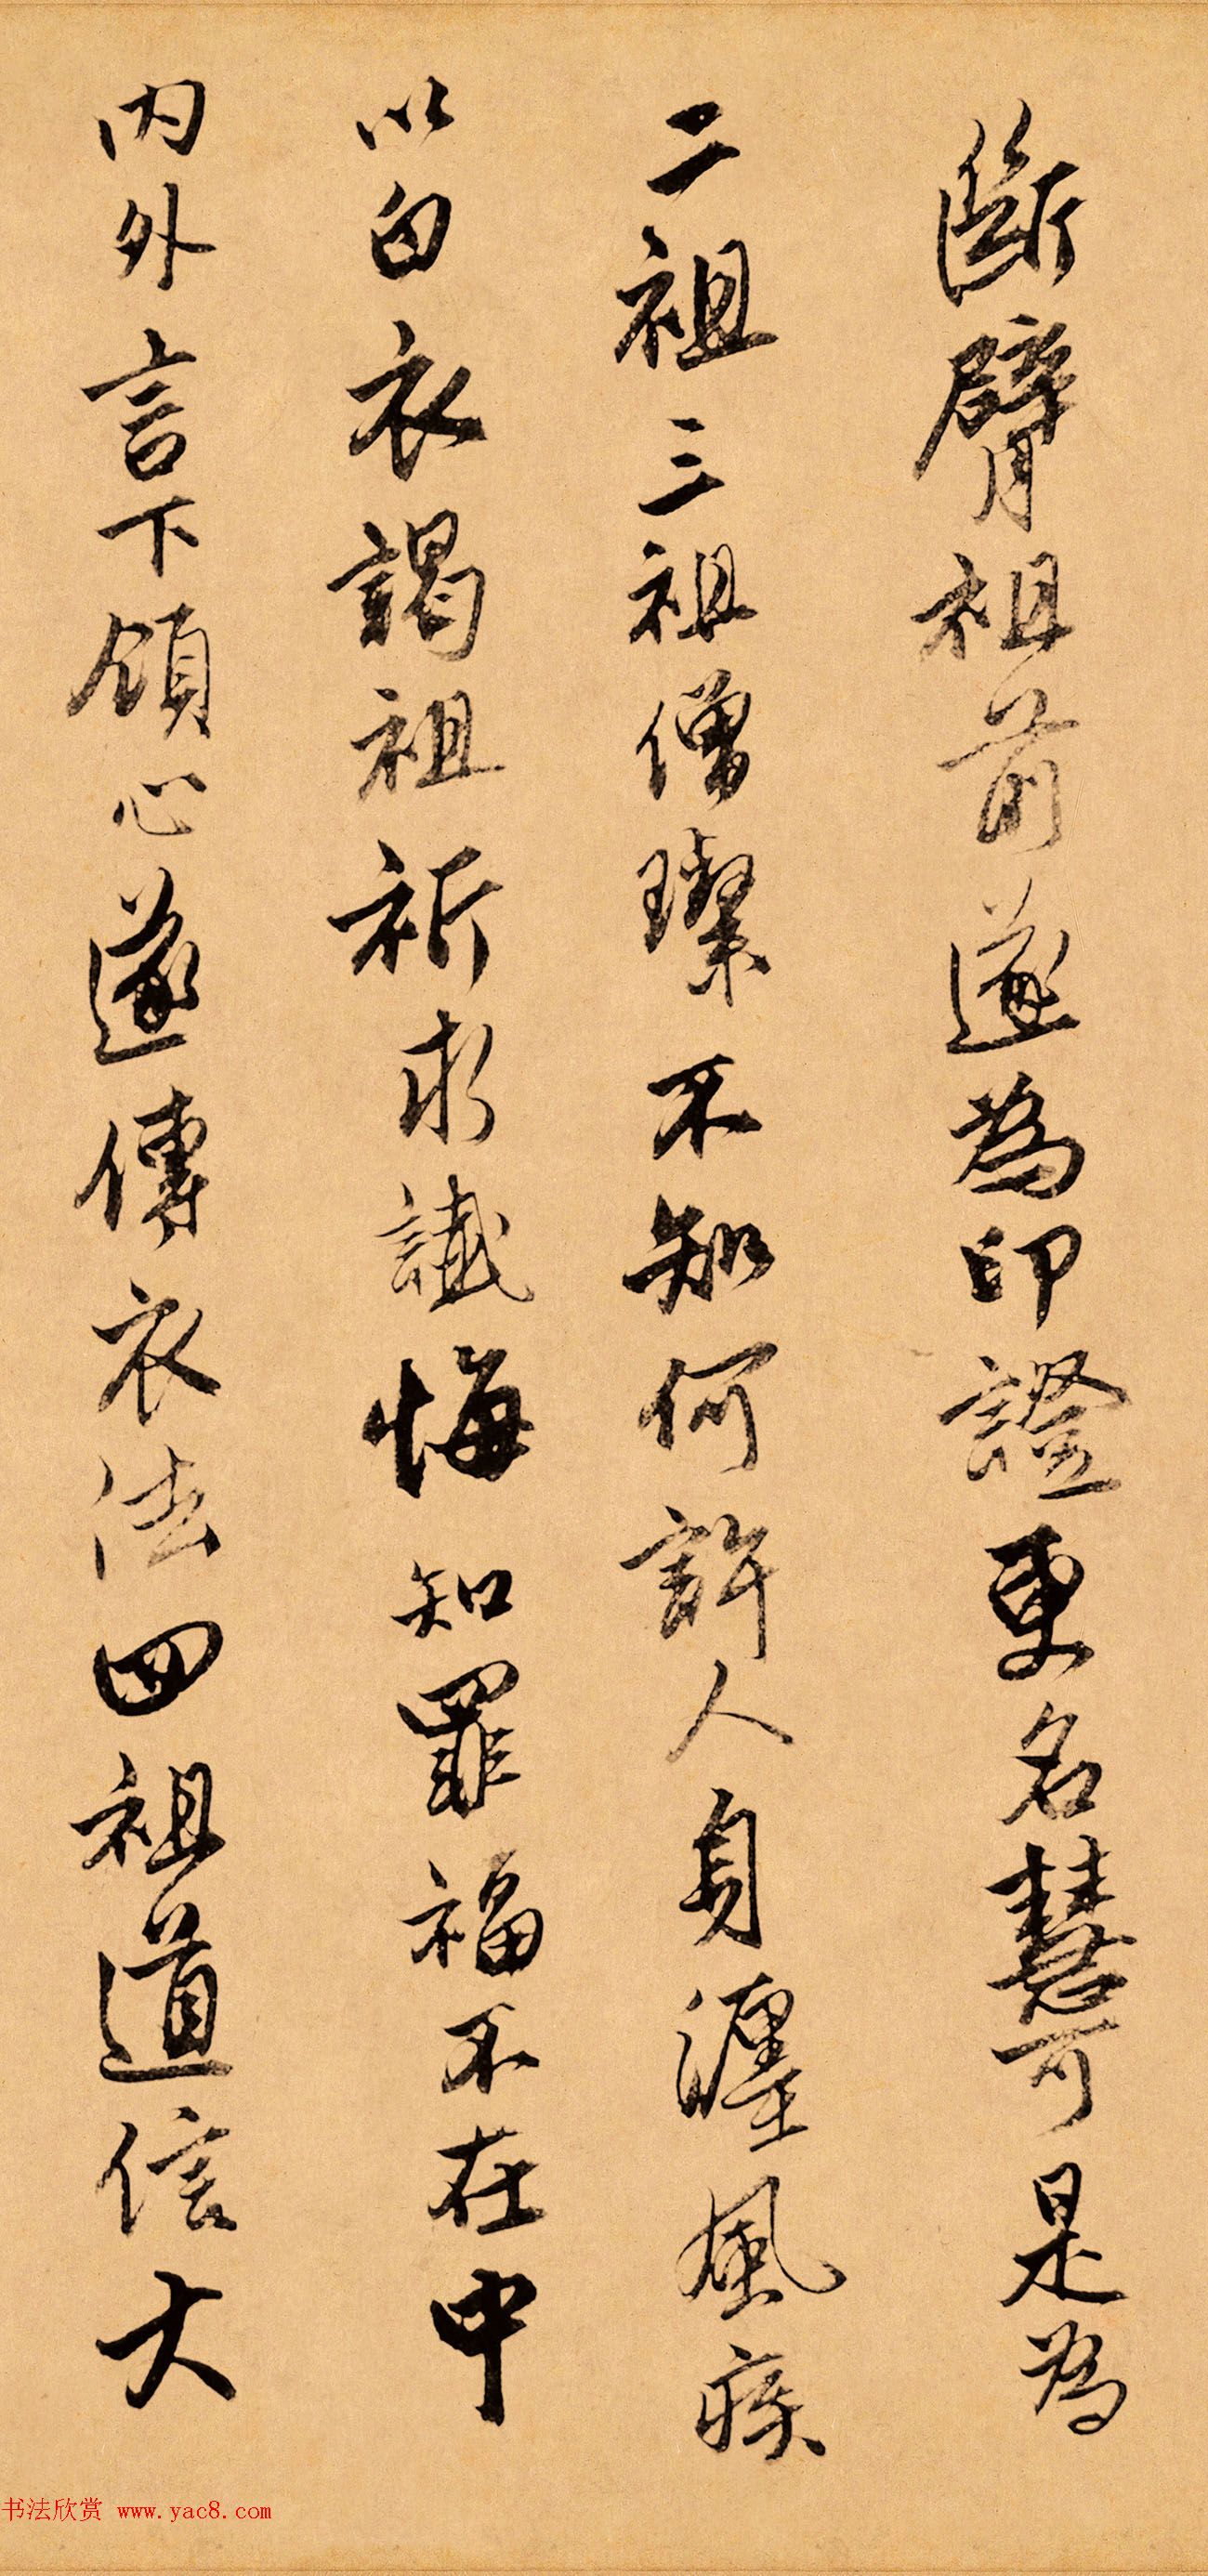 斷臂祖前遂為印證更名慧可是為
二祖三祖僧璨不知何許人身纏風疾
以白衣謁祖祈求懺悔知罪福不在中
內外言下領心遂傳衣法四祖道信大
书法欣赏 www.yac8.com